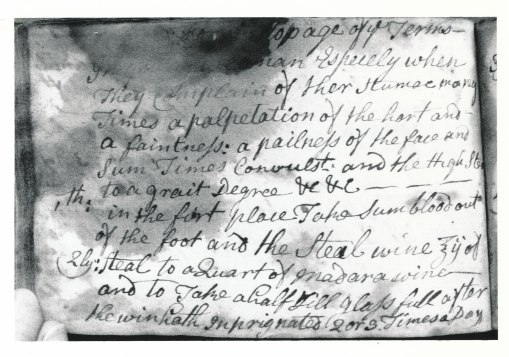 opage of ye Terms
man Especely when
They Complain of ther Stumac many
Times a palpetation of the hart and
a faintness: a pailness of the face and
Sum Times Convulst: and the High Ste
to a grait Degree &c &c
1th: in the furt place Take Sum blood out
of the foot and the Steal wine ʒij of
2ly: Steal to a Quart of madara wine
and to Take a half Gill glass full after
the wink hath Inprignated 2 or 3 Times a Day